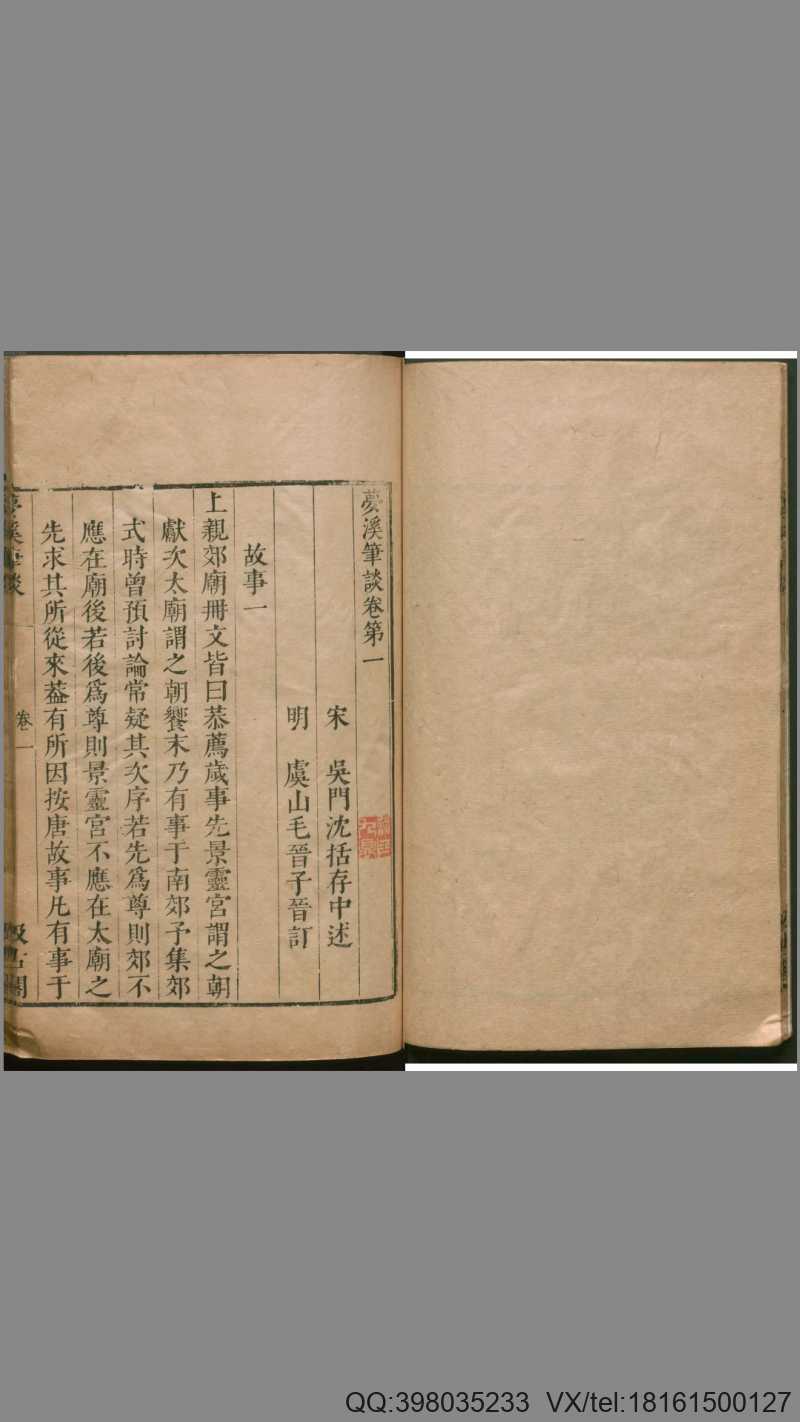 夢溪筆談卷第一
宋　吳門沈括存中述
明　虞山毛晉子晉訂
故事一
上親郊廟冊文皆曰恭薦歲事先景靈宮謂之朝
獻次太廟謂之朝饗末乃有事于南郊予集郊
式時曾預討論常疑其次序若先爲尊則郊不
應在廟後若後爲尊則景靈宮不應在太廟之
先求其所從來葢有所因按唐故事凡有事于
夢溪筆談
卷一
汲古閣
QQ:398035233 VX/tel:18161500127